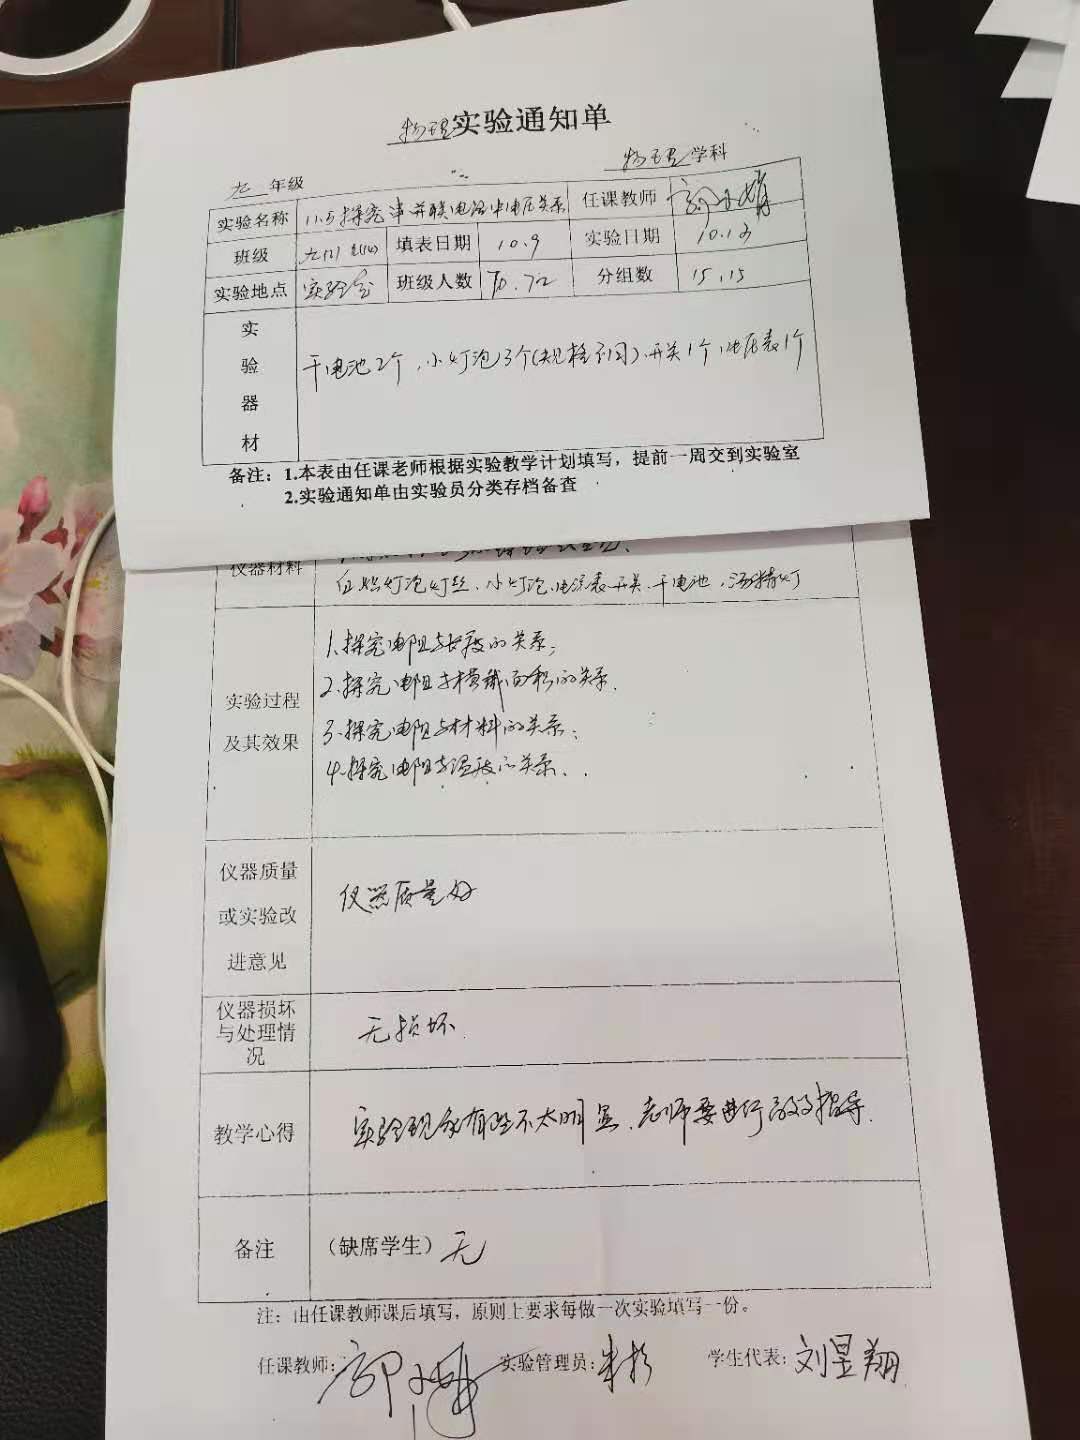 物理实验通知单
九 年级 物理学科
实验名称 11.5探究串并联电路中电压关系 任课教师
班级 填表日期 10.9 实验日期 10.13
实验地点 实验室 班级人数 70.72 分组数 15.15
实验器材 干电池2个,小灯泡3个(规格不同)、开关1个,电压表1个
备注:1.本表由任课老师根据实验教学计划填写,提前一周交到实验室
2.实验通知单由实验员分类存档备查
仪器材料
白炽灯泡灯丝、小灯泡、电流表、开关、干电池,酒精灯
实验过程及其效果
1.探究电阻与长度的关系;
2.探究电阻与横截面积的关系.
3.探究电阻与材料的关系;
4.探究电阻与温度的关系.
仪器质量或实验改进意见 仪器质量好
仪器损坏与处理情况 无损坏.
教学心得 实验现象有些不太明显.老师要进行 指导.
备注 (缺席学生) 无
注:由任课教师课后填写,原则上要求每做一次实验填写一份。
任课教师: 实验管理员: 学生代表:刘昱翔